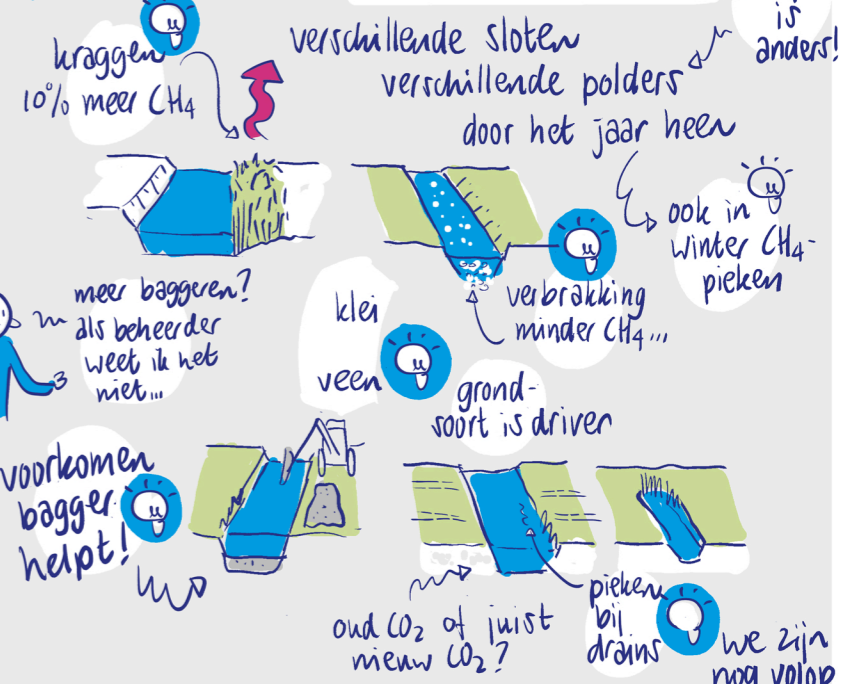 is
anders!
kraggen
10% meer CH4
verschillende sloten
verschillende polders
door het jaar heen
ook in
winter CH4-
pieken
verbrakking
minder CH4...
meer baggeren?
als beheerder
weet ik het
niet...
klei
veen
grond-
soort is driver
voorkomen
bagger
helpt!
oud CO2 of juist
nieuw CO2?
pieken
bij
drains
we zijn
nog volop